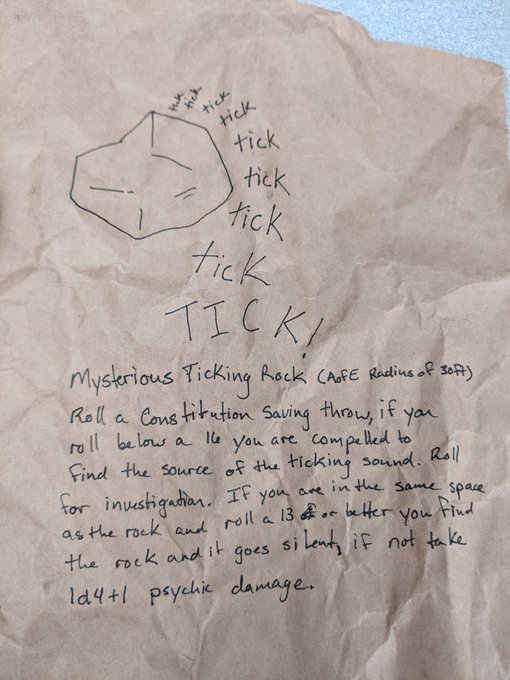 tick
tick
tick
tick
tick
tick
tick
tick
TICK!
Mysterious Ticking Rock (AofE Radius of 30ft)
Roll a Constitution Saving throw, if you
roll below a 16 you are compelled to
find the source of the ticking sound. Roll
for investigation. If you are in the same space
as the rock and roll a 13 or better you find
the rock and it goes silent, if not take
1d4+1 psychic damage.